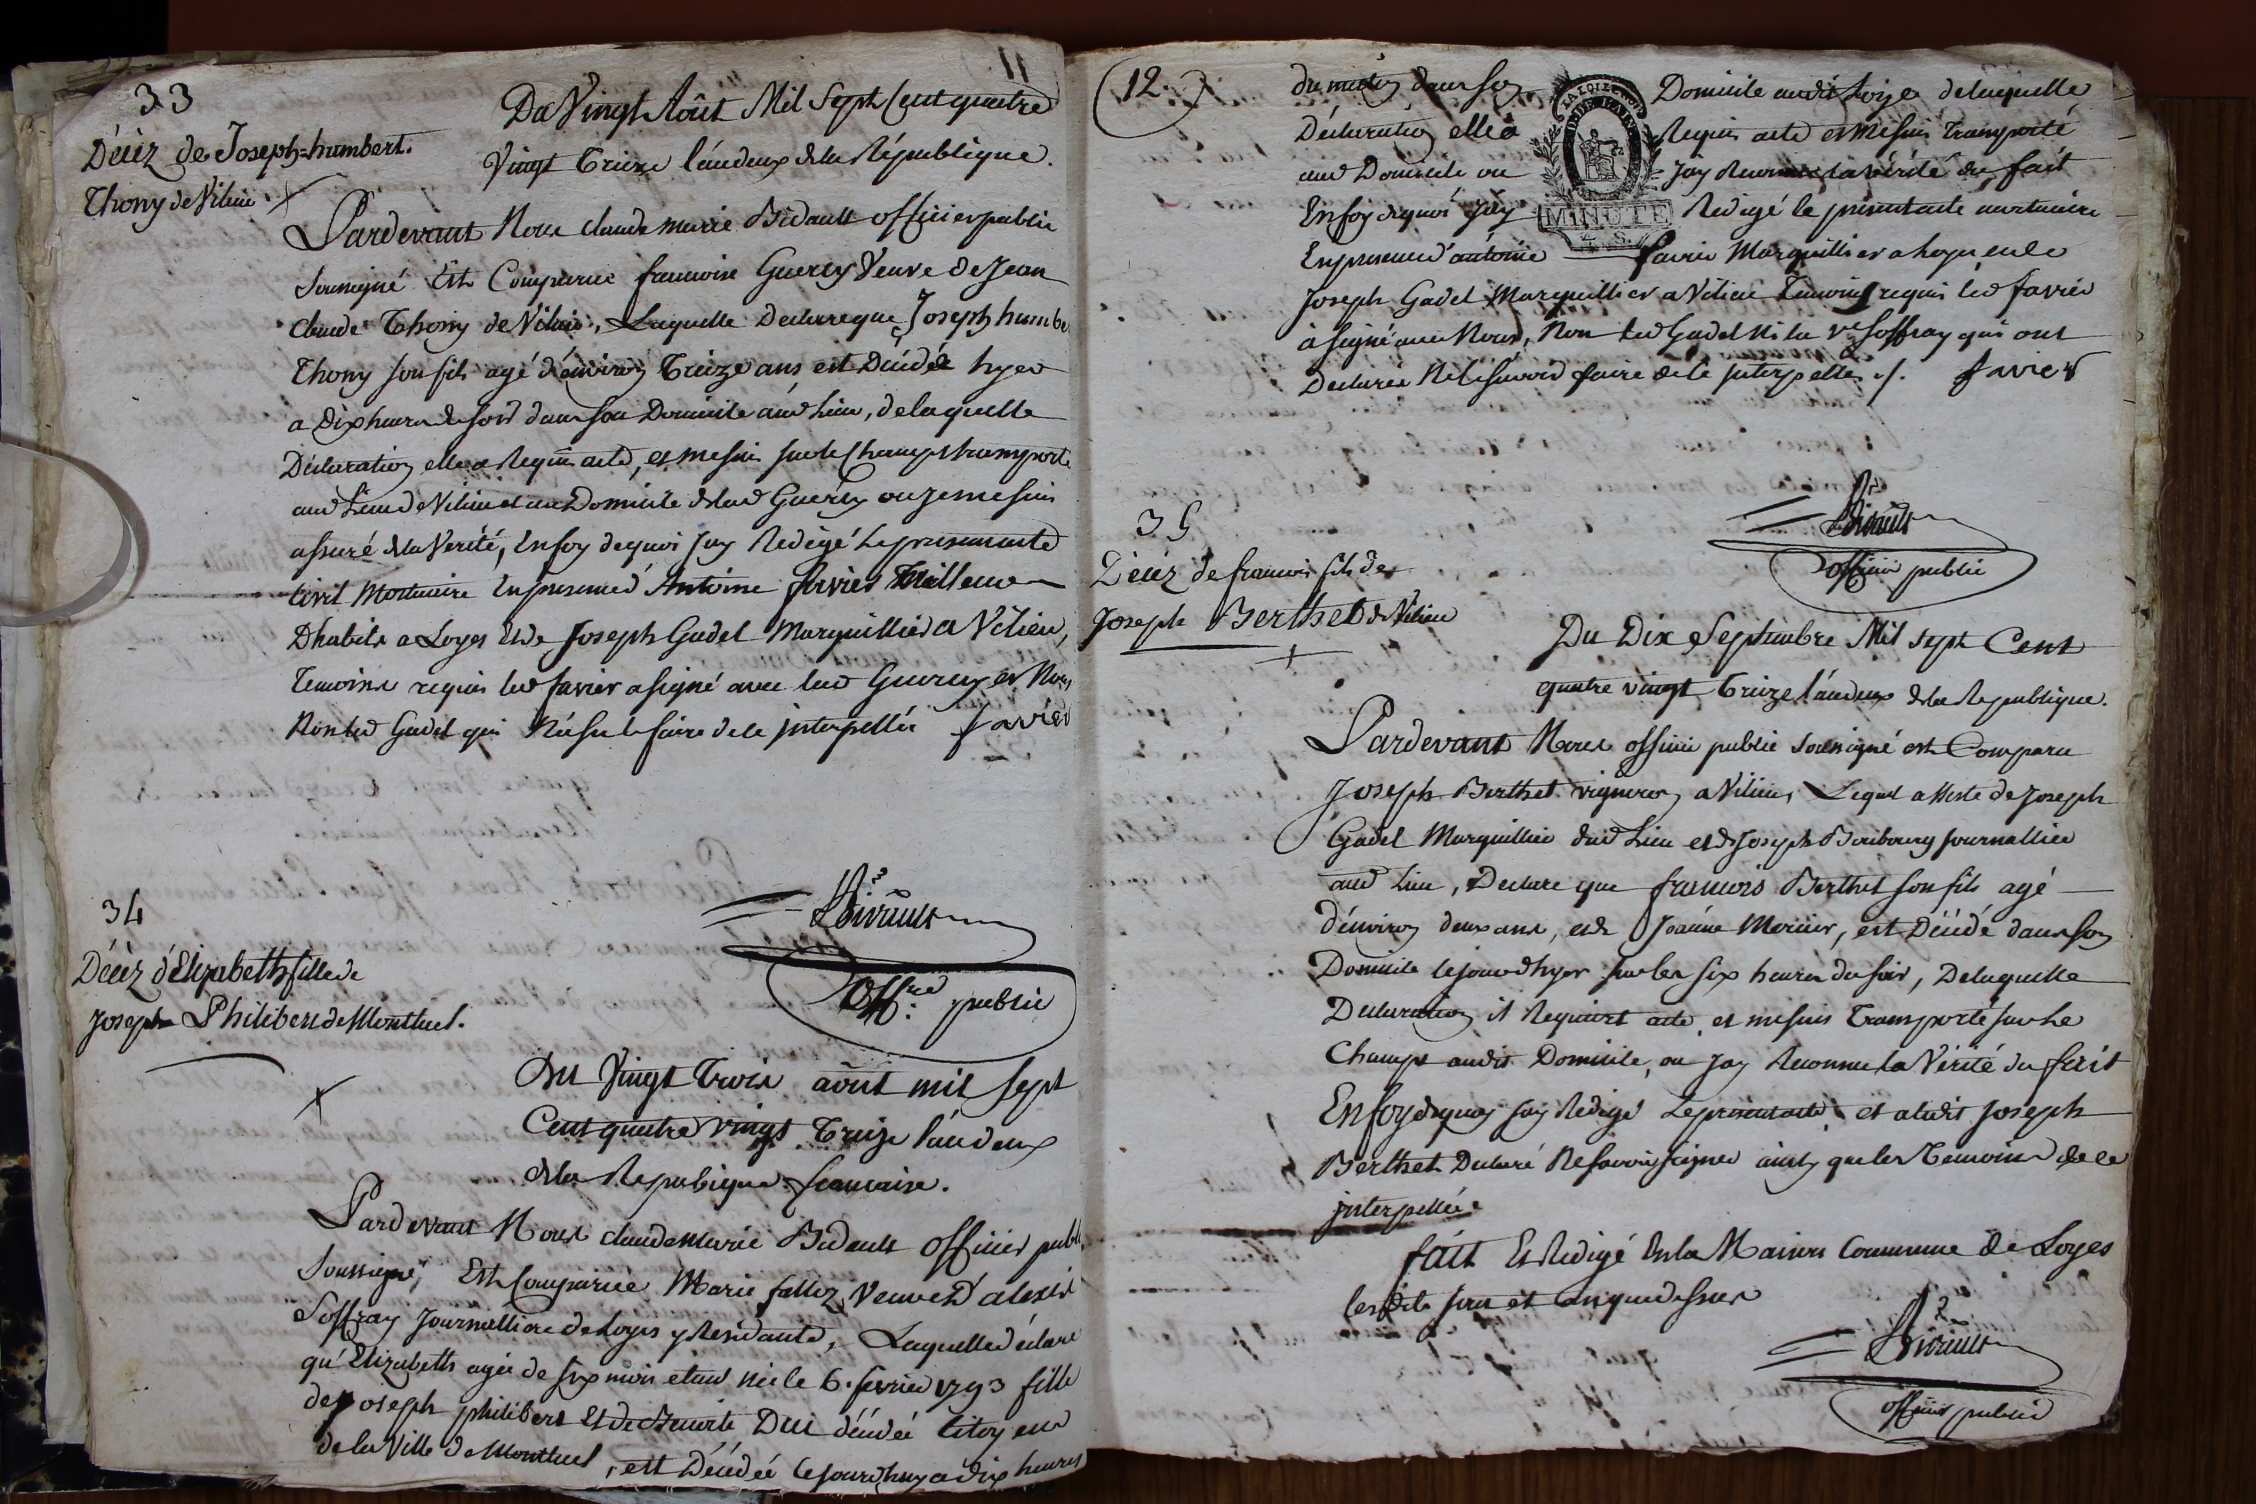 11.
33
Décéz de Joseph=humbert.
Thony de Vilieu
Du Vingt Août Mil Sept Cent quatre
Vingt Treize l'an deux de la République.
Pardevant Nous Claude Marie Bidault officier public
Soussigné Est Comparue francoise Guerry Veuve de Jean
Claude Thony de Vilieu, Laquelle Declare que Joseph humbe
Thony son fils agé d'environ Treize ans est Décédé hyer
a Dix heures du soir dans son Domicile aud Lieu, de laquelle
Déclaration elle a Requis acte, et me suis sur le Champ transporté
aud Lieu de Vilieu et au Domicile de lad Guerry ou je me suis
assuré de la Verité, En foy de quoi Jay Redigé Le present acte
Civil Mortuaire En presence d'Antoine favier Tailleur
Dhabits a Loyes Et de Joseph Gadel Marguillier a Vilieu,
Temoins requis led favier a signé avec lad Guerry et Nous
Non led Gadel qui N'a su le faire de ce interpellé favier
Bidault
Off.er public
34
Décéz d'Elizabeth fille de
Joseph Philibert de Montluel.
Du Vingt Trois août mil sept
Cent quatre vingt Treize l'an deux
de la Republique francaise.
Pardevant Nous Claude Marie Bidault officier publi
Soussigné, Est Comparuee Marie fallez Veuve d'alexis
Soffray Journalliere de Loyes y Residante, Laquelle déclare
qu'Elizabeth agée de six mois etant née le 6. fevrier 1793 fille
de Joseph philibert Et de Benoite Duc décédée Citoyens
de la Ville de Montluel, est Décédée ce jourd'huy a dix heures
12.
du matin dans son Domicile audit Loyes de laquelle
Déclaration elle a Requis acte et me suis Transporté
aud Domicile ou Jay Reconnu la vérité du fait
En foy de quoi Jay Redigé le present acte mortuaire
En presence d'antoine favier Marguillier a Loyes et de
Joseph Gadel Marguillier a Vilieu Temoins requis led favier
à signé avec Nous, Non led Gadel Ni la v.e Soffray qui ont
Declarés Ne le savoir faire de ce Interpellés ./. favier
MINUTE
Bidault
officier public
35
Décéz de francois fils de
Joseph Berthet de Vilieu
Du Dix Septembre Mil sept Cent
quatre vingt Treize l'an deux de la Republique.
Pardevant Nous officier public soussigné est Comparu
Joseph Berthet vigneron a Vilieu, Lequel assisté de Joseph
Gadel Marguillier dud Lieu et de Joseph Bourbourg Journallier
aud Lieu, Declare que francois Berthet son fils agé
d'environ deux ans, et de Jeanne Mercier, est Décédé dans son
Domicile le jour d'hyer sur les six heures du soir, De laquelle
Declaration il Requiert acte, et me suis Transporté sur le
Champ audit Domicile, ou Jay Reconnu la Vérité du fait
En foy de quoy Jay Redigé Le present acte, et a ledit Joseph
Berthet Declaré Ne savoir signer ainsy que les Temoins de ce
interpellés.
fait Et Redigé En la Maison Commune de Loyes
les dits jour et an que dessus
Bidault
officier public